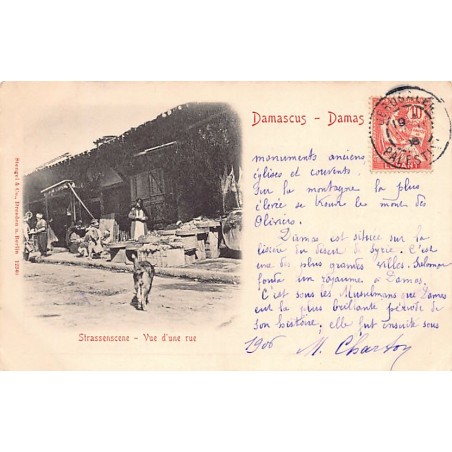 Damascus - Damas
JERUSALEM
PALESTINE
10
monuments anciens
églises et couvents.
Sur la montagne la plus
élevée se trouve le mont des
Oliviers.
Damas est située sur la
lisière du désert de Syrie. C'est
une des plus grandes villes. Salomon
fonda un royaume à Damas.
C'est sous les Musulmans que Damas
eut la plus brillante période de
son histoire; elle fut ensuite sous
1906 M. Charton
Strassenscene - Vue d'une rue
Stengel & Co., Dresden u. Berlin